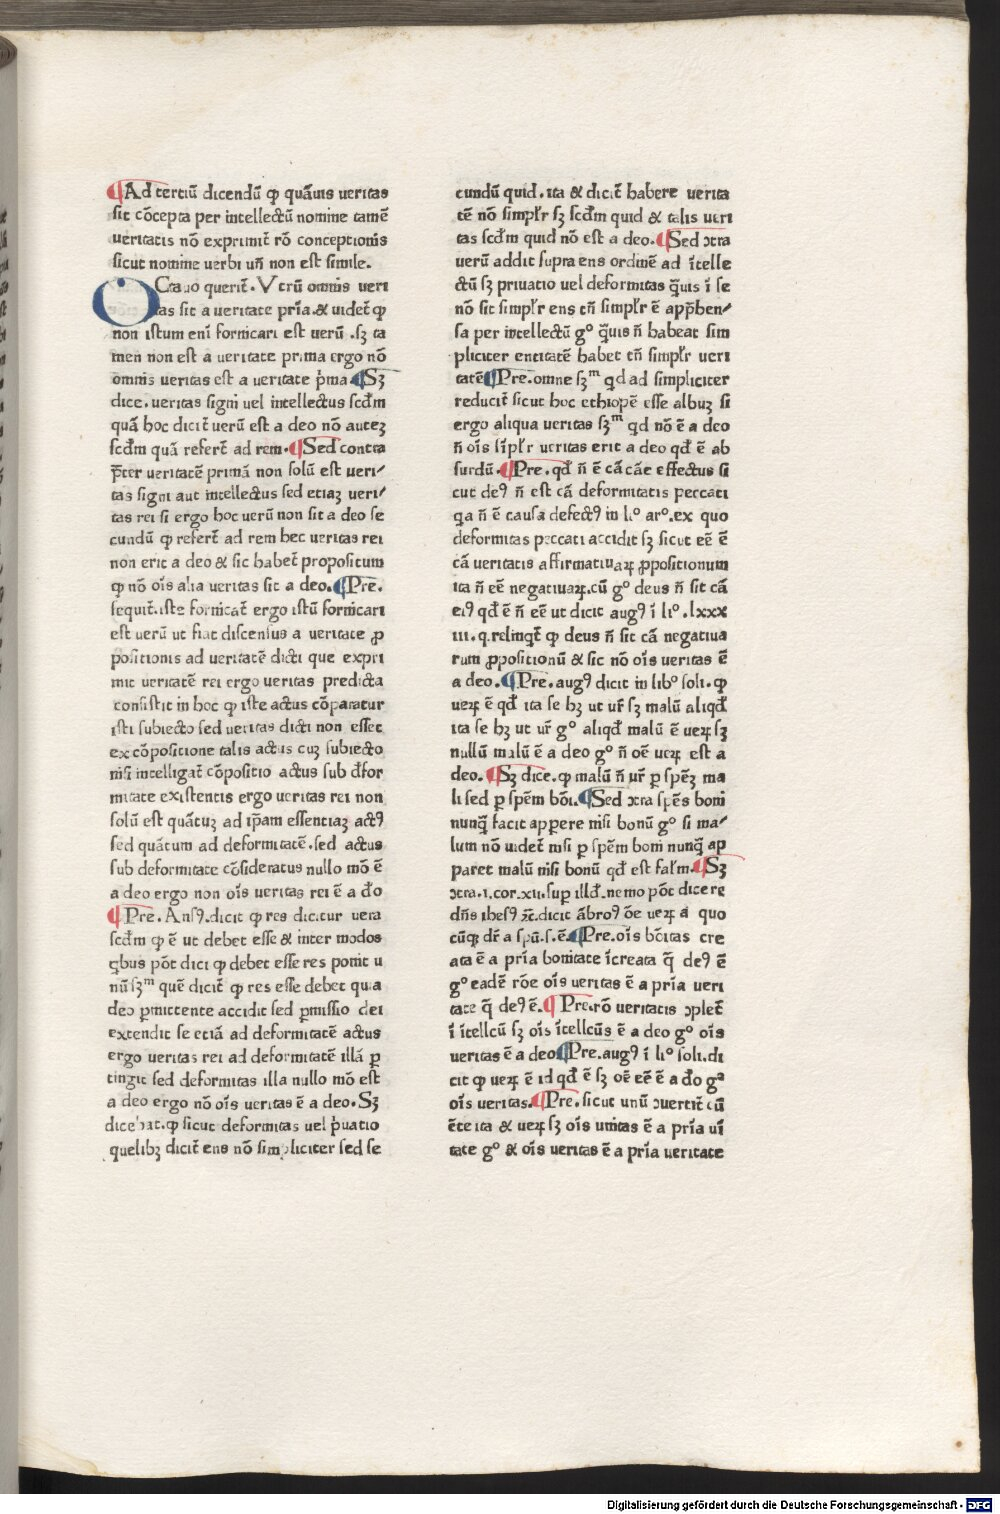 ¶Ad terciū dicendū ꝙ quāuis ueritas
sit cōcepta per intellectū nomine tamē
ueritatis nō exprimit̄ rō conceptionis
sicut nomine uerbi uñ non est simile.
OCtauo querit̄. Vtrū omnis ueri
tas sit a ueritate pr̄ia. & uidet̄ ꝙ
non istum eni fornicari est uerū .sꝫ ta
men non est a ueritate prima ergo nō
omnis ueritas est a ueritate p̄ma ¶Sꝫ
dice. ueritas signi uel intellectus scd̄m
quā hoc dicit̄ uerū est a deo nō autez
scd̄m quā refert̄ ad rem. ¶Sed contra
p̄ter ueritatē primā non solū est ueri⸗
tas signi aut intellectus sed etiaꝫ ueri⸗
tas rei si ergo hoc uerū non sit a deo se
cundū ꝙ refert̄ ad rem hec ueritas rei
non erit a deo & sic habet̄ propositum
ꝙ nō oīs alia ueritas sit a deo. ¶Pre.
sequit̄. iste fornicat̄ ergo istū fornicari
est uerū ut fiat discensus a ueritate ꝓ
positionis ad ueritatē dicti que expri
mit ueritatē rei ergo ueritas predicta
consistit in hoc ꝙ iste actus cōparatur
isti subiecto sed ueritas dicti non esset
ex cōpositione talis actus cuꝫ subiecto
nisi intelligat̄ cōpositio actus sub d̄for
mitate existentis ergo ueritas rei non
solū est quātuꝫ ad ip̄am essentiaꝫ actꝰ
sed quātum ad deformitatē. sed actus
sub deformitate cōsideratus nullo mō ē
a deo ergo non oīs ueritas rei ē a d̄o
¶Pre. Ansꝰ. dicit ꝙ res dicitur uera
scd̄m ꝙ ē ut debet esse & inter modos
qbus pōt dici ꝙ debet esse res ponit u
nū sꝫᵐ quē dicit̄ ꝙ res esse debet quia
deo ꝑmittente accidit sed ꝑmissio dei
extendit se etiā ad deformitatē actus
ergo ueritas rei ad deformitatē illā ꝑ
tingit sed deformitas illa nullo mō est
a deo ergo nō oīs ueritas ē a deo. Sꝫ
dicebat. ꝙ sicut deformitas uel p̄uatio
quelibꝫ dicit̄ ens nō simpliciter sed se
cundū quid. ita & dicit̄ habere uerita
tē nō simpl̄r sꝫ scd̄m quid & talis ueri
tas scd̄m quid nō est a deo. ¶Sed ↄtra
uerū addit supra ens ordinē ad ītelle
ctū sꝫ priuatio uel deformitas q̄uis ī se
nō sit simpl̄r ens tn̄ simpl̄r ē app̄hen⸗
sa per intellectū gº q̄uis n̄ habeat sim
pliciter entitatē habet tn̄ simpl̄r ueri
tatē ¶Pre. omne sꝫᵐ qd ad simpliciter
reducit̄ sicut hoc ethiopē esse albuꝫ si
ergo aliqua ueritas sꝫᵐ qd nō ē a deo
n̄ oīs sīpl̄r ueritas erit a deo qd̄ ē ab
surdū. ¶Pre. qd̄ n̄ ē cā cāe effectus si
cut deꝰ n̄ est cā deformitatis peccati
qa n̄ ē causa defectꝰ in liº arº. ex quo
deformitas peccati accidit sꝫ sicut eē ē
cā ueritatis affirmatiuaꝝ ꝓpositionum
ita n̄ eē negatiuaꝝ. cū gº deus n̄ sit cā
eiꝰ qd̄ ē n̄ eē ut dicit augꝰ ī liº. lxxx
iii. q. relinqt̄ ꝙ deus n̄ sit cā negatiua
rum ꝓpositionū & sic nō oīs ueritas ē
a deo. ¶Pre. augꝰ dicit in libº soli. ꝙ
ueꝝ ē qd̄ ita se hꝫ ut ur̄ sꝫ malū aliqd̄
ita se hꝫ ut ur̄ gº aliqd̄ malū ē ueꝝ sꝫ
nullū malū ē a deo gº n̄ oē ueꝝ est a
deo. ¶Sꝫ dice. ꝙ malū n̄ ur̄ ꝑ spēꝫ ma
li sed ꝑ spēm bōi. ¶Sed ↄtra spēs boni
nunq̄ facit apꝑere nisi bonū gº si ma⸗
lum nō uidet̄ nisi ꝑ spēm boni nunq̄ ap
paret malū nisi bonū qd̄ est fal̄m. ¶Sꝫ
ↄtra. i. cor. xii. suꝑ illd̄. nemo pōt dicere
dn̄s ihesꝰ ⁊c̄. dicit ābroꝰ ōe ueꝝ a quo
cūqꝫ dr̄ a spū. s. ē. ¶Pre. oīs bōitas cre
ata ē a pr̄ia bonitate īcreata q̄ deꝰ ē
gº eadē rōe oīs ueritas ē a pr̄ia ueri
tate q̄ deꝰ ē. ¶Pre. rō ueritatis ↄplet̄
ī ītellcū sꝫ oīs ītellcūs ē a deo gº oīs
ueritas ē a deo ¶Pre. augꝰ ī liº soli. di
cit ꝙ ueꝝ ē id qd̄ ē sꝫ oē eē ē a d̄o gª
oīs ueritas. ¶Pre. sicut unū ↄuertit̄ cū
ēte ita & ueꝝ sꝫ oīs unitas ē a pr̄ia ui
tate gº & oīs ueritas ē a pr̄ia ueritate
Digitalisierung gefördert durch die Deutsche Forschungsgemeinschaft - DFG